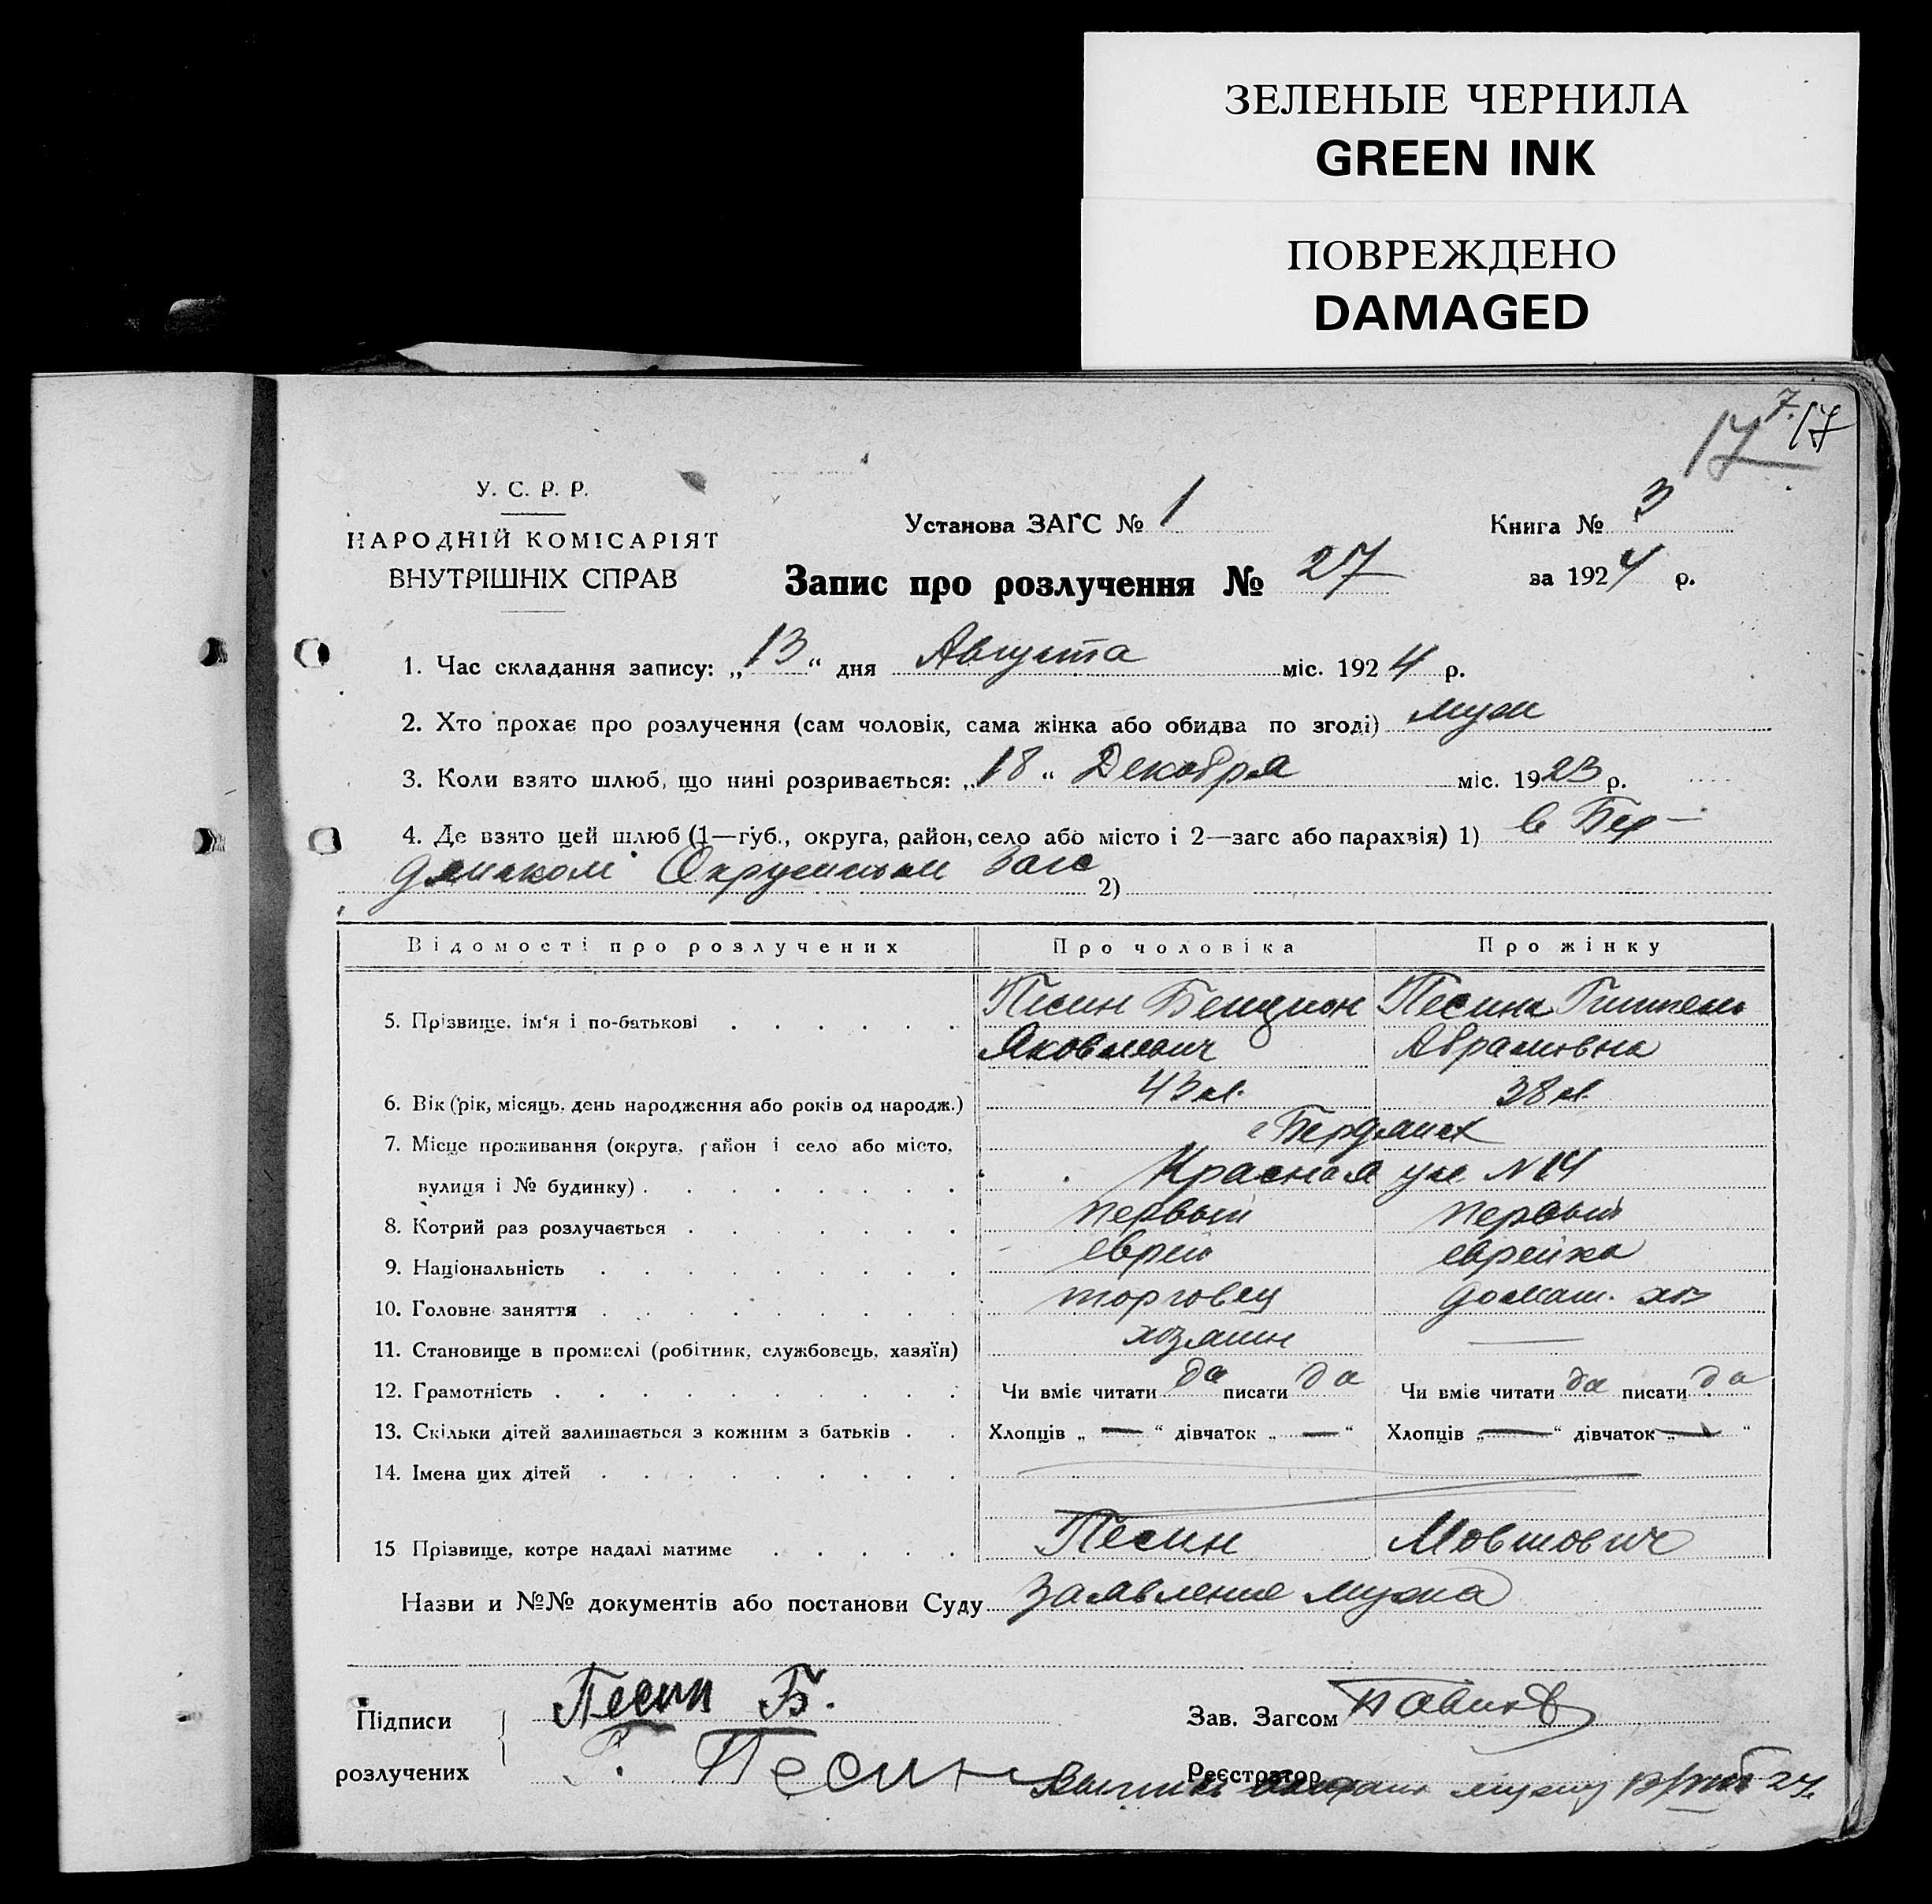 ЗЕЛЕНЫЕ ЧЕРНИЛА
GREEN INK
ПОВРЕЖДЕНО
DAMAGED
7.
17 17
У. С. Р. Р.
НАРОДНІЙ КОМІСАРІЯТ
ВНУТРІШНІХ СПРАВ
Установа ЗАГС № 1
Книга № 3
Запис про розлучення № 27
за 1924 р.
1. Час складання запису: „13“ дня Августа міс. 1924 р.
2. Хто прохає про розлучення (сам чоловік, сама жінка або обидва по згоді) муж
3. Коли взято шлюб, що нині розривається: „18“ Декабря міс. 1923 р.
4. Де взято цей шлюб (1—губ., округа, район, село або місто і 2—загс або парахвія) 1) в Бер-
дянском Окружном Загс 2)
Відомості про розлучених Про чоловіка Про жінку
5. Прізвище, ім‘я і по-батькові Песин Бенцион Песина
Яковлевич Абрамовна
6. Вік (рік, місяць, день народження або років од народж.) 43 л. 38 л.
7. Місце проживання (округа, район і село або місто, г Бердянск
вулиця і № будинку) Красная ул. N 14
8. Котрий раз розлучається первый первый
9. Національність еврей еврейка
10. Головне заняття торговец домаш. хоз
11. Становище в промислі (робітник, службовець, хазяїн) хозяин —
12. Грамотність Чи вміє читати да писати да Чи вміє читати да писати да
13. Скільки дітей залишається з кожним з батьків Хлопців „—“ дівчаток „—“ Хлопців „—“ дівчаток „—“
14. Імена цих дітей
15 Прізвище, котре надалі матиме Песин Мовшович
Назви и №№ документів або постанови Суду Заявление мужа
Підписи Песин Б.
Зав. Загсом
розлучених Г. Песин
Реєстратор
мужу 24.